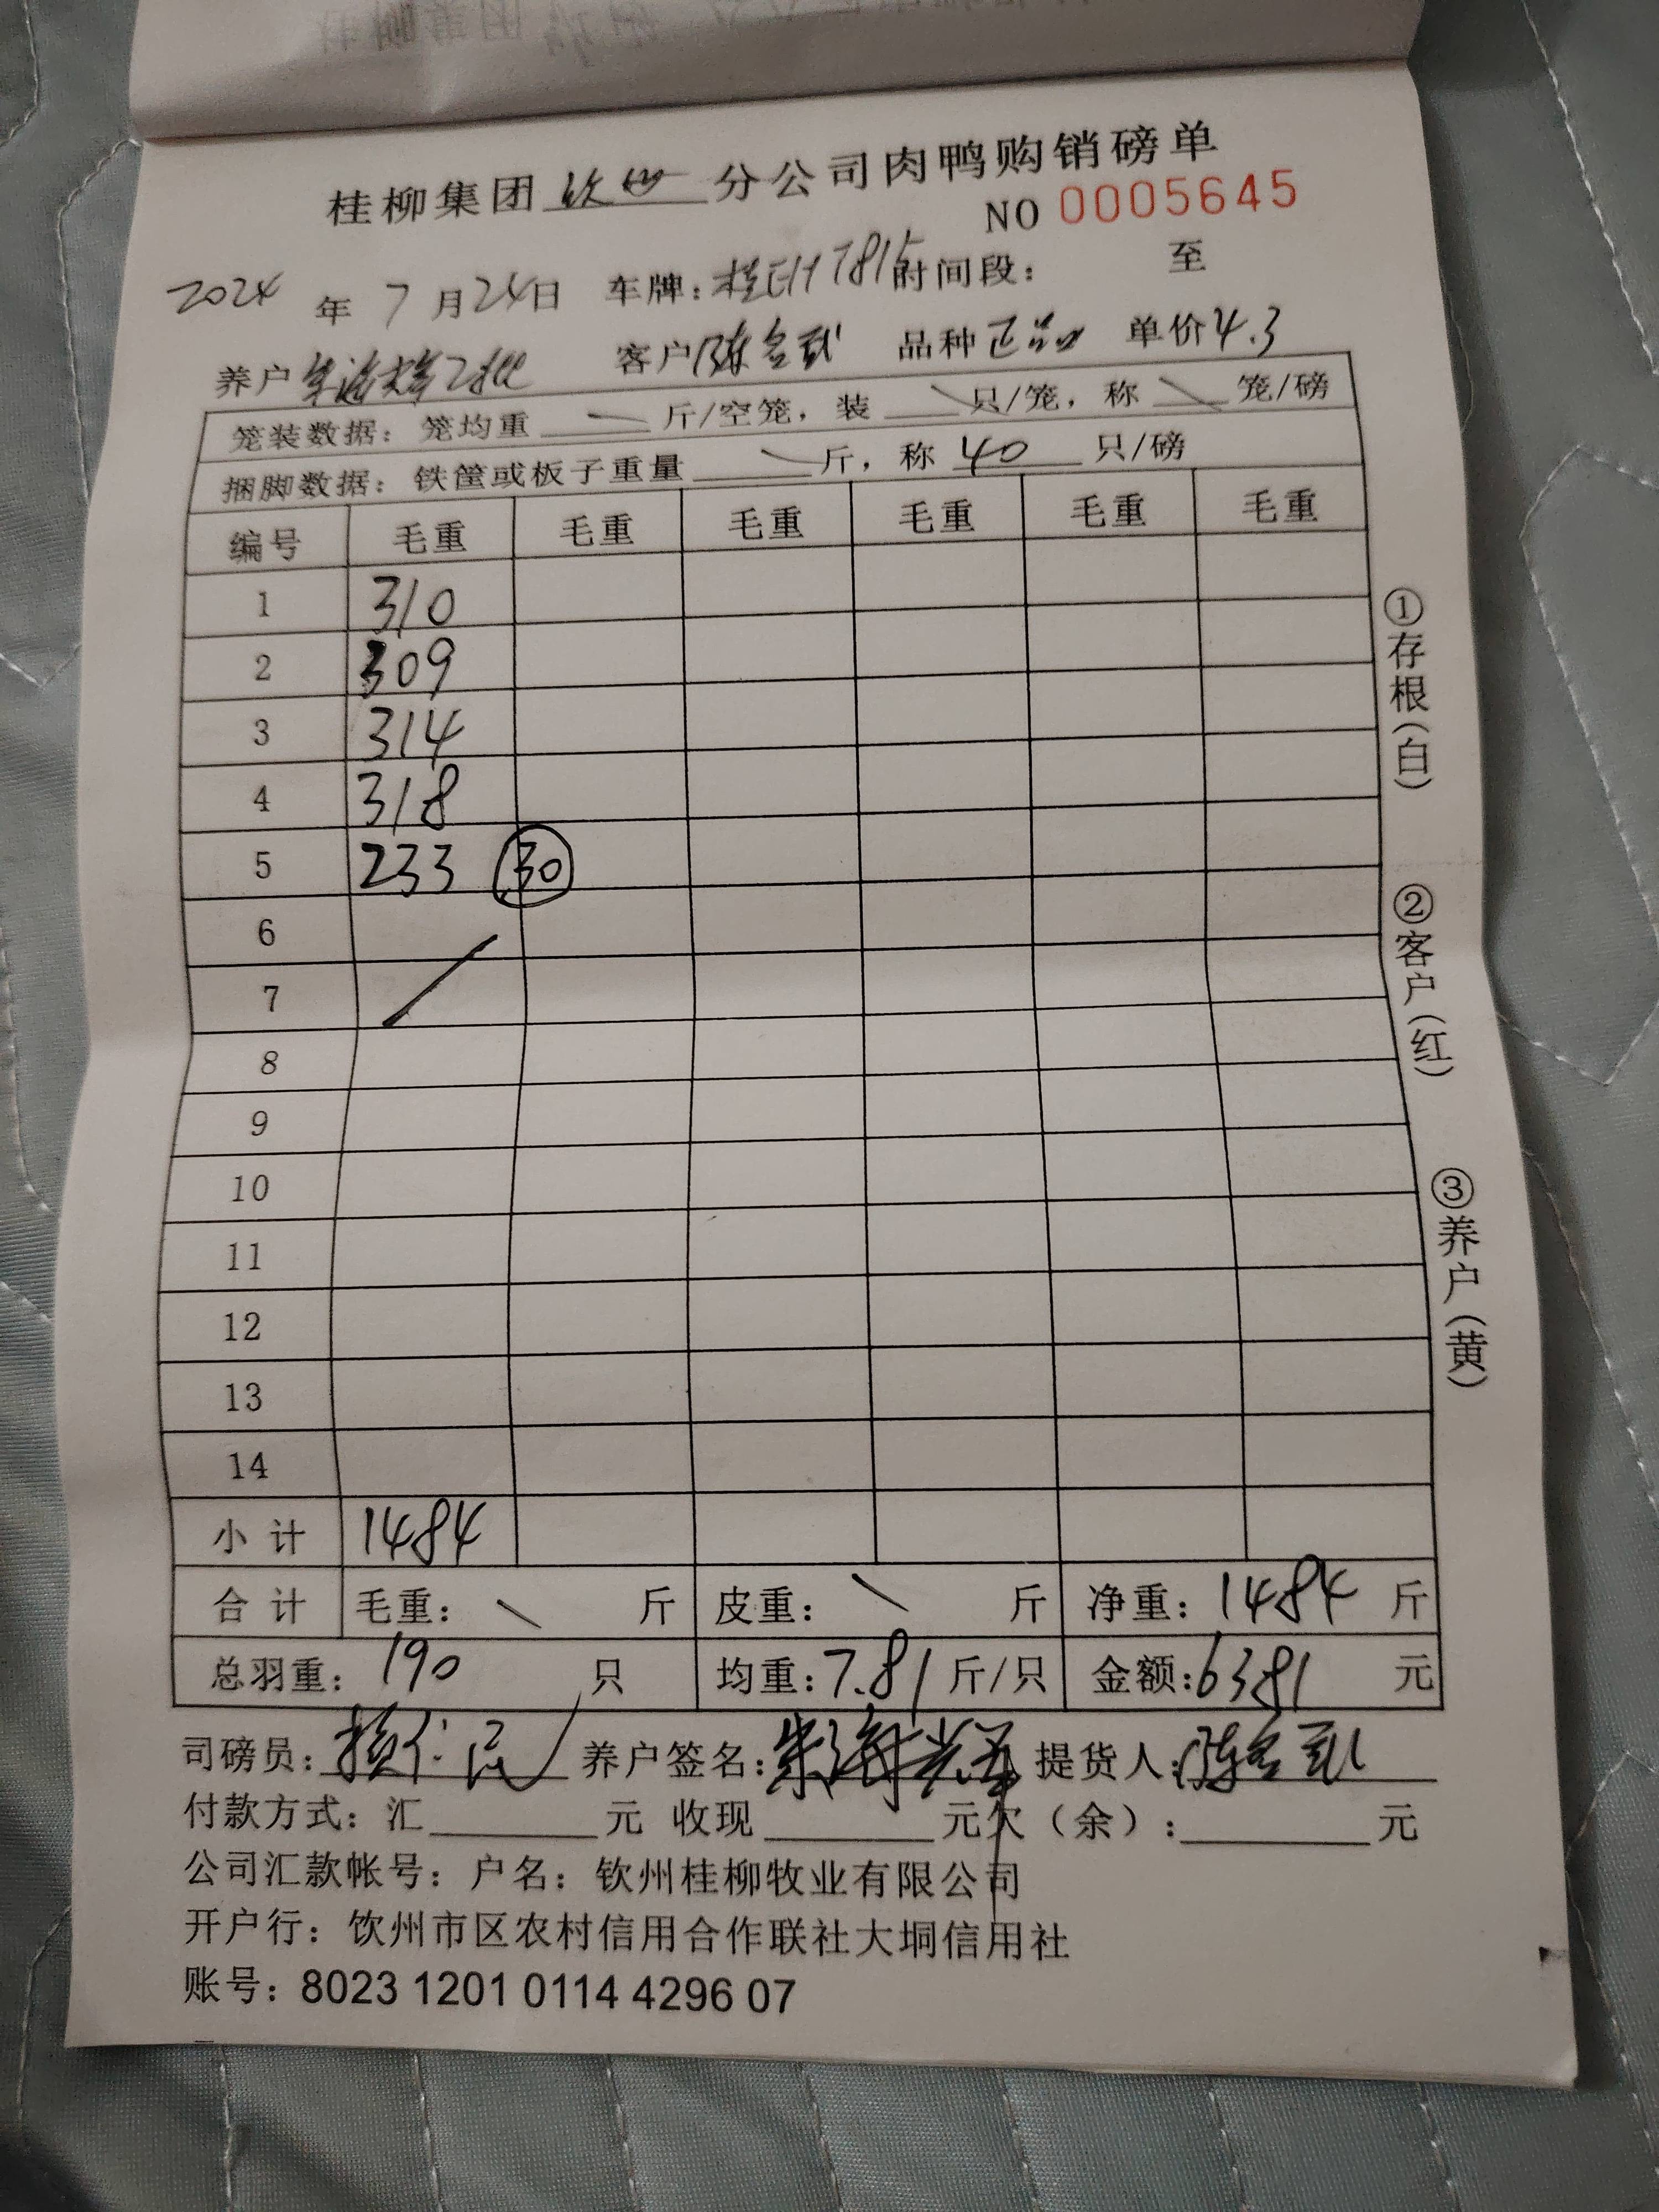 桂柳集团 钦州 分公司肉鸭购销磅单
NO 0005645
2024 年 7 月 24 日 车牌: 桂EH7815 时间段: 至
养户 客户 陈 品种 正品 单价 4.3
笼装数据: 笼均重 斤/空笼, 装 只/笼, 称 笼/磅
捆脚数据: 铁筐或板子重量 斤, 称 40 只/磅
编号 毛重 毛重 毛重 毛重 毛重 毛重
1 310
2 309
3 314
4 318
5 233 30
6
7
8
9
10
11
12
13
14
小计 1484
合计 毛重: 斤 皮重: 斤 净重: 1484 斤
总羽重: 190 只 均重: 7.81 斤/只 金额: 6381 元
司磅员: 养户签名: 朱海 提货人: 陈
付款方式: 汇 元 收现 元 欠（余）: 元
公司汇款帐号: 户名: 钦州桂柳牧业有限公司
开户行: 饮州市区农村信用合作联社大垌信用社
账号: 8023 1201 0114 4296 07
①存根（白）
②客户（红）
③养户（黄）